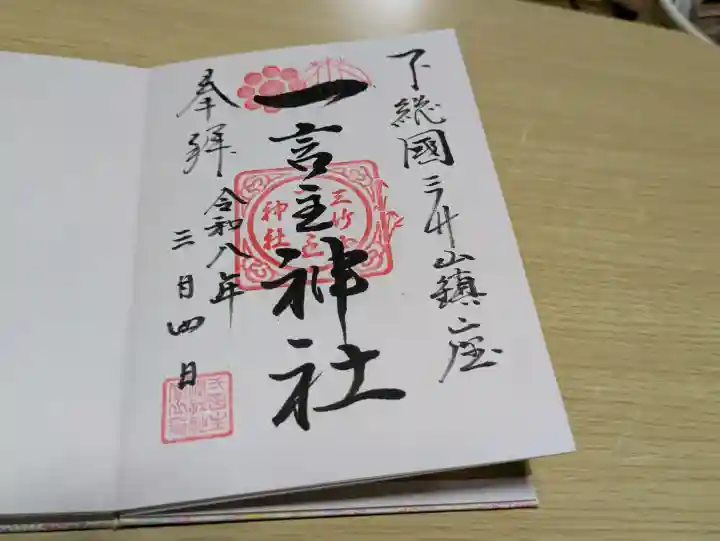 下総國三竹山鎮座
一言主神社
奉拝
令和八年
三月四日
三竹山
一言主
神社